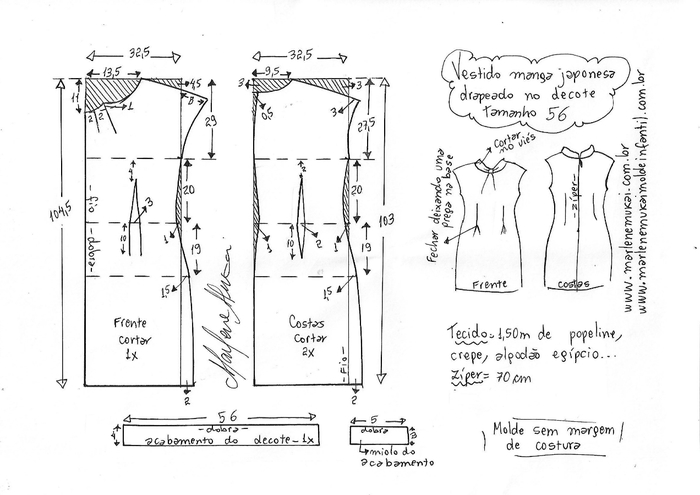 32,5
13,5
4,5
8
11
2
2
1
29
4
20
3
10
1
19
1,5
104,5
-fio-
-dobra-
Frente
cortar
1x
2
32,5
9,5
3
3
3
0,5
27,5
2
20
10
2
1
1
19
1,5
103
Costas
cortar
2x
-Fio-
2
Vestido manga japonesa
drapeado no decote
tamanho 56
Cortar
no viés
Fechar deixando uma
prega na base
Frente
-zíper-
Costas
www.marlenemukai.com.br
www.marlenemukaimoldeinfantil.com.br
Tecido=1,50m de popeline,
crepe, algodão egípcio...
Zíper= 70cm
Molde sem margem
de costura
56
-dobra-
acabamento do decote-1x
5
dobra
miolo do
acabamento